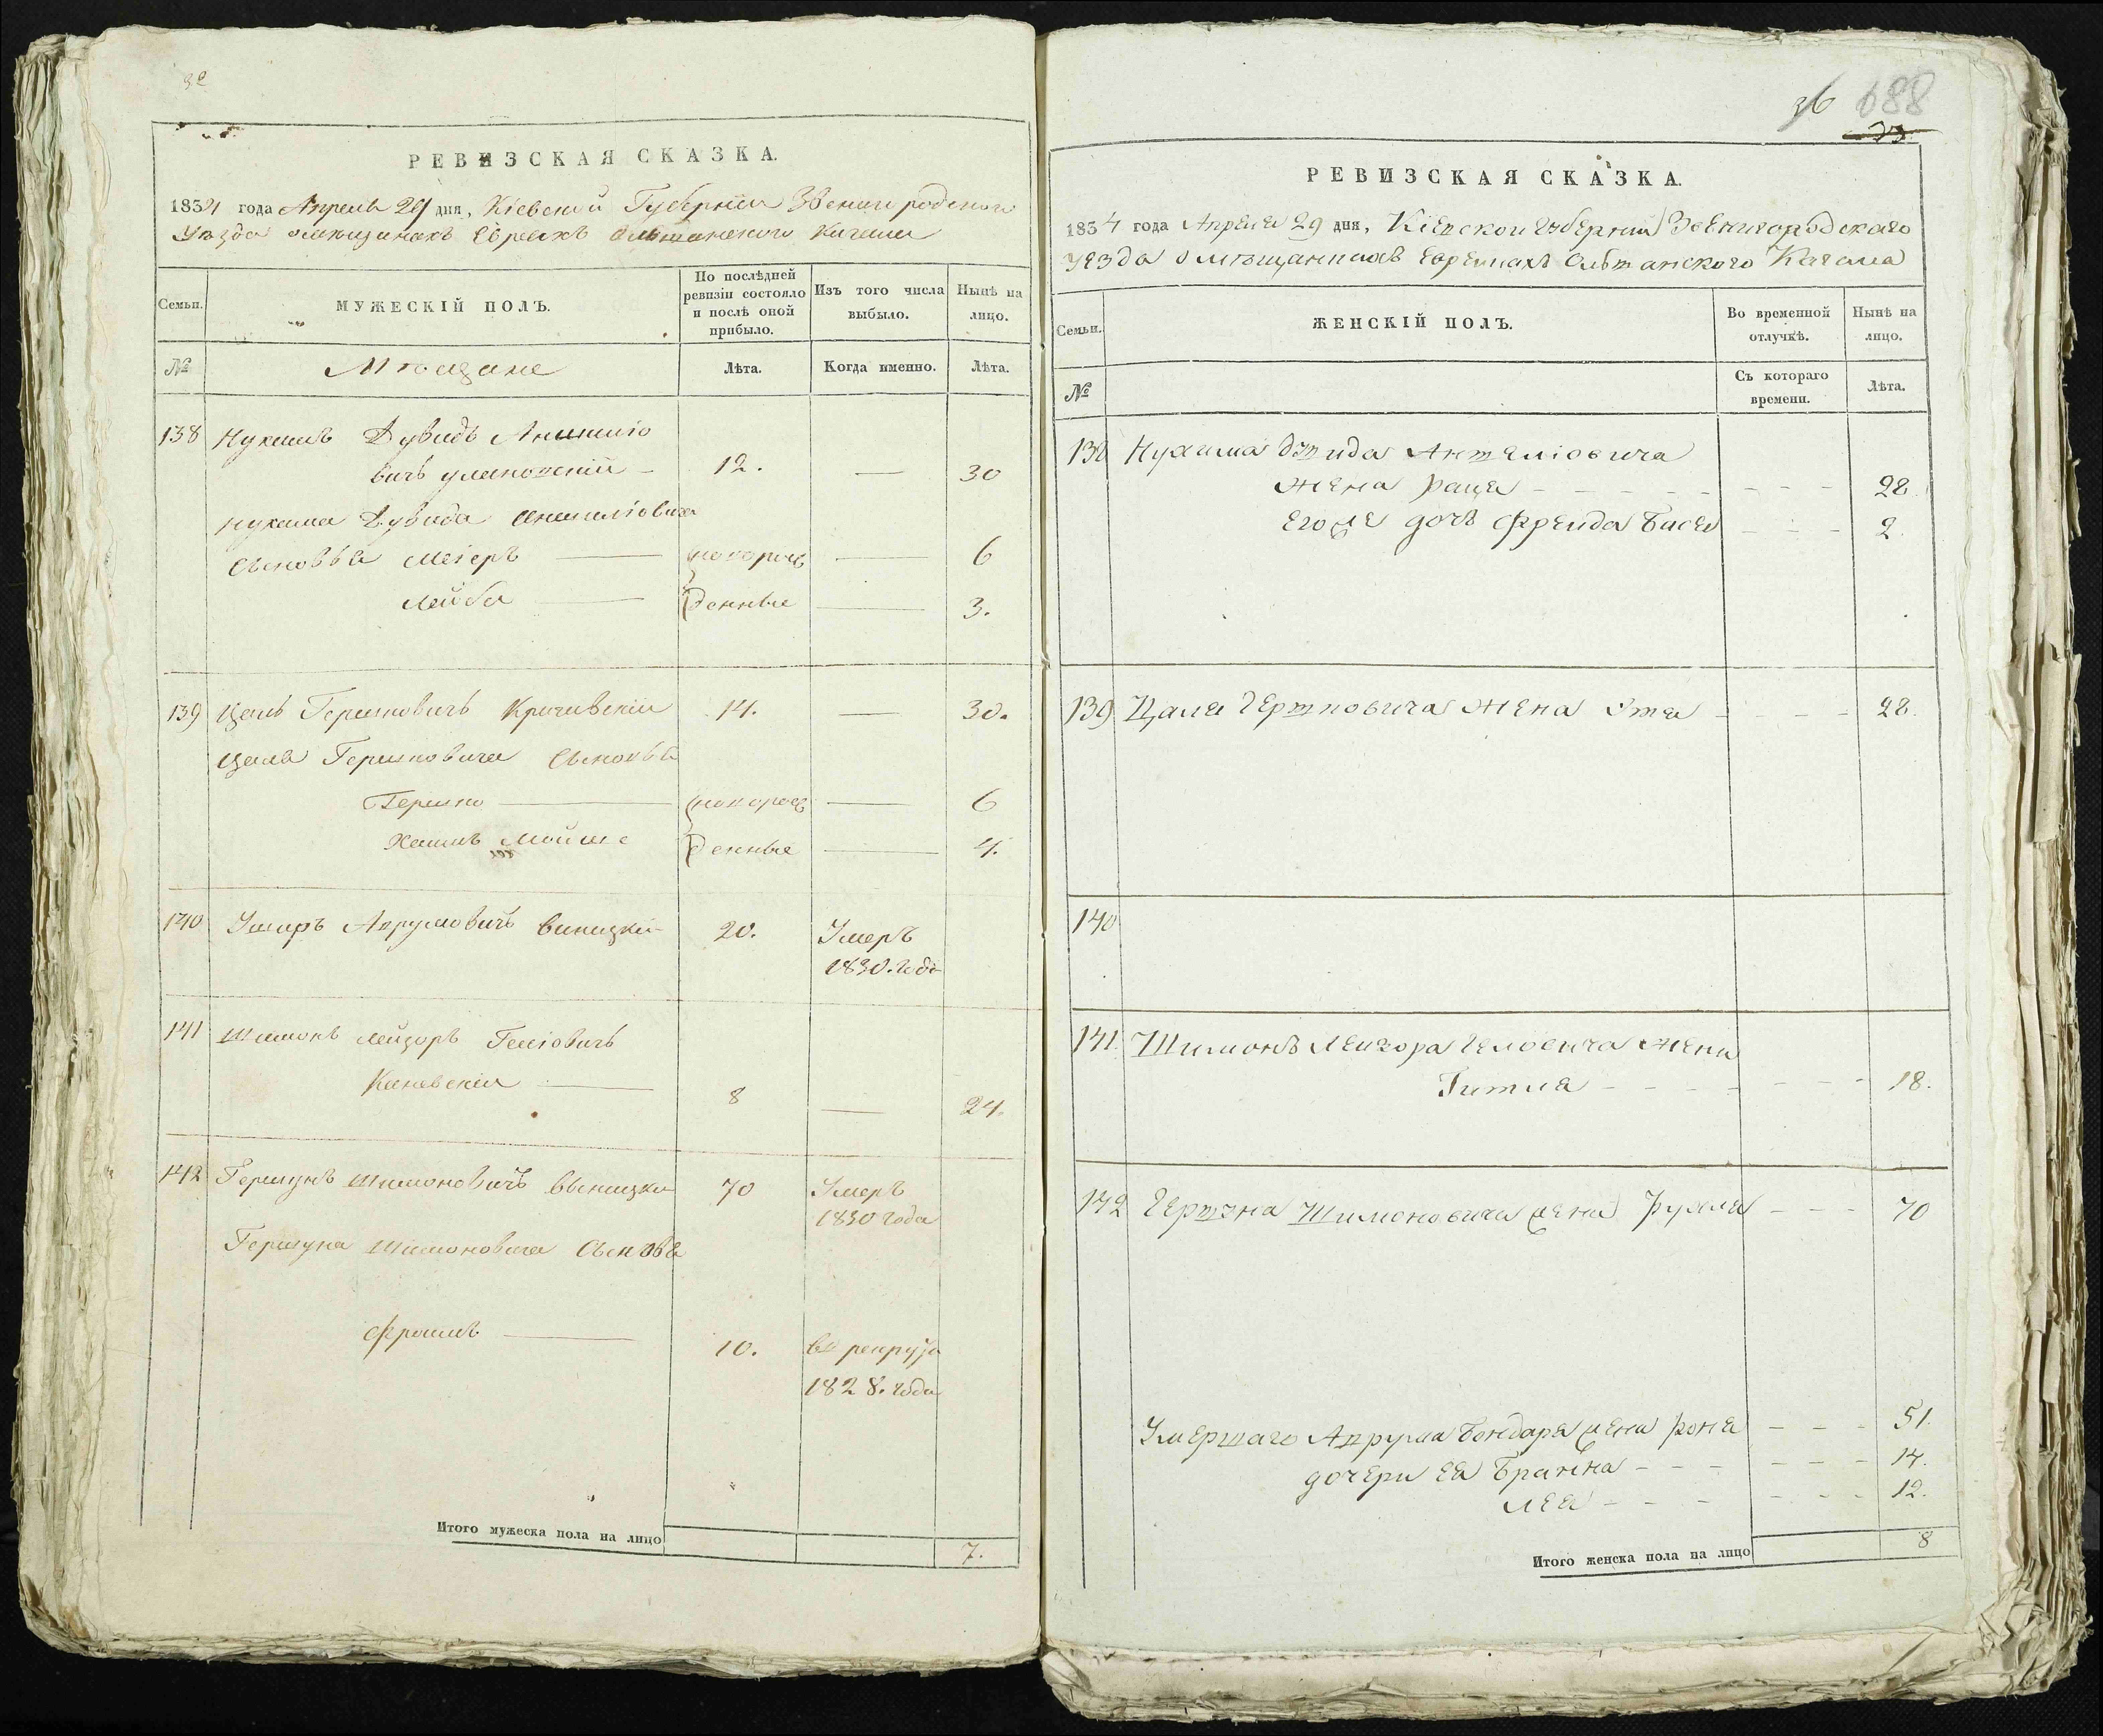 РЕВИЗСКАЯ СКАЗКА.
1834 года Апреля 29 дня, Кіевской Губерніи Звенигородского
Уезда о мещанахъ Евреяхъ Ольшанского Кагала
Семьи.
МУЖЕСКІЙ ПОЛЪ.
По послѣдней ревизіи состояло и послѣ оной прибыло.
Изъ того числа выбыло.
Нынѣ на лицо.
№
Мѣщане
Лѣта.
Когда именно.
Лѣта.
138 Нухимъ Дувидъ Аншиліо
вичъ 12. — 30
Нухима Дувида Аншиліовича
Сыновья Меіеръ — новорож — 6
Лейба — денные — 3.
139 Цаль Гершковичъ Кричевскій 14. — 30.
Цаля Гершковича Сыновья
Гершко — новорож — 6
Хаимъ Мойше денные — 4.
140 Ушеръ Аврумовичъ Виницкій 20. Умеръ
1830. года
141 Шимонъ Лейзоръ Геліовичъ
Каневскій — 8 — 24.
142 Гершунъ Шимоновичъ 70 Умеръ
1830 года
Гершуна Шимоновича Сыновья
Фроимъ — 10. въ рекруты
1828. года
Итого мужеска пола на лицо 7.
36 688
РЕВИЗСКАЯ СКАЗКА.
1834 года Апреля 29 дня, Кіевской Губерніи Звенигородскаго
Уезда о мѣщанинахъ Евреинахъ Ольшанского Кагала
Семьи.
ЖЕНСКІЙ ПОЛЪ.
Во временной отлучкѣ.
Нынѣ на лицо.
№
Съ котораго времени.
Лѣта.
138 Нухима Дувида Аншеліовича
жена Раця - - - 28.
Его же дочь Фрейда Бася - - - 2.
139 Цаля Гершковича жена - - - 28.
140
141. Шимонъ Лейзора Геловича жена
Гитля - - - 18.
142 Гершуна Шимоновича жена Рухля - - - 70
Умершаго Аврума Бондаря жена - - - 51.
дочери ея - - - 14.
Лея - - - 12.
Итого женска пола на лицо 8